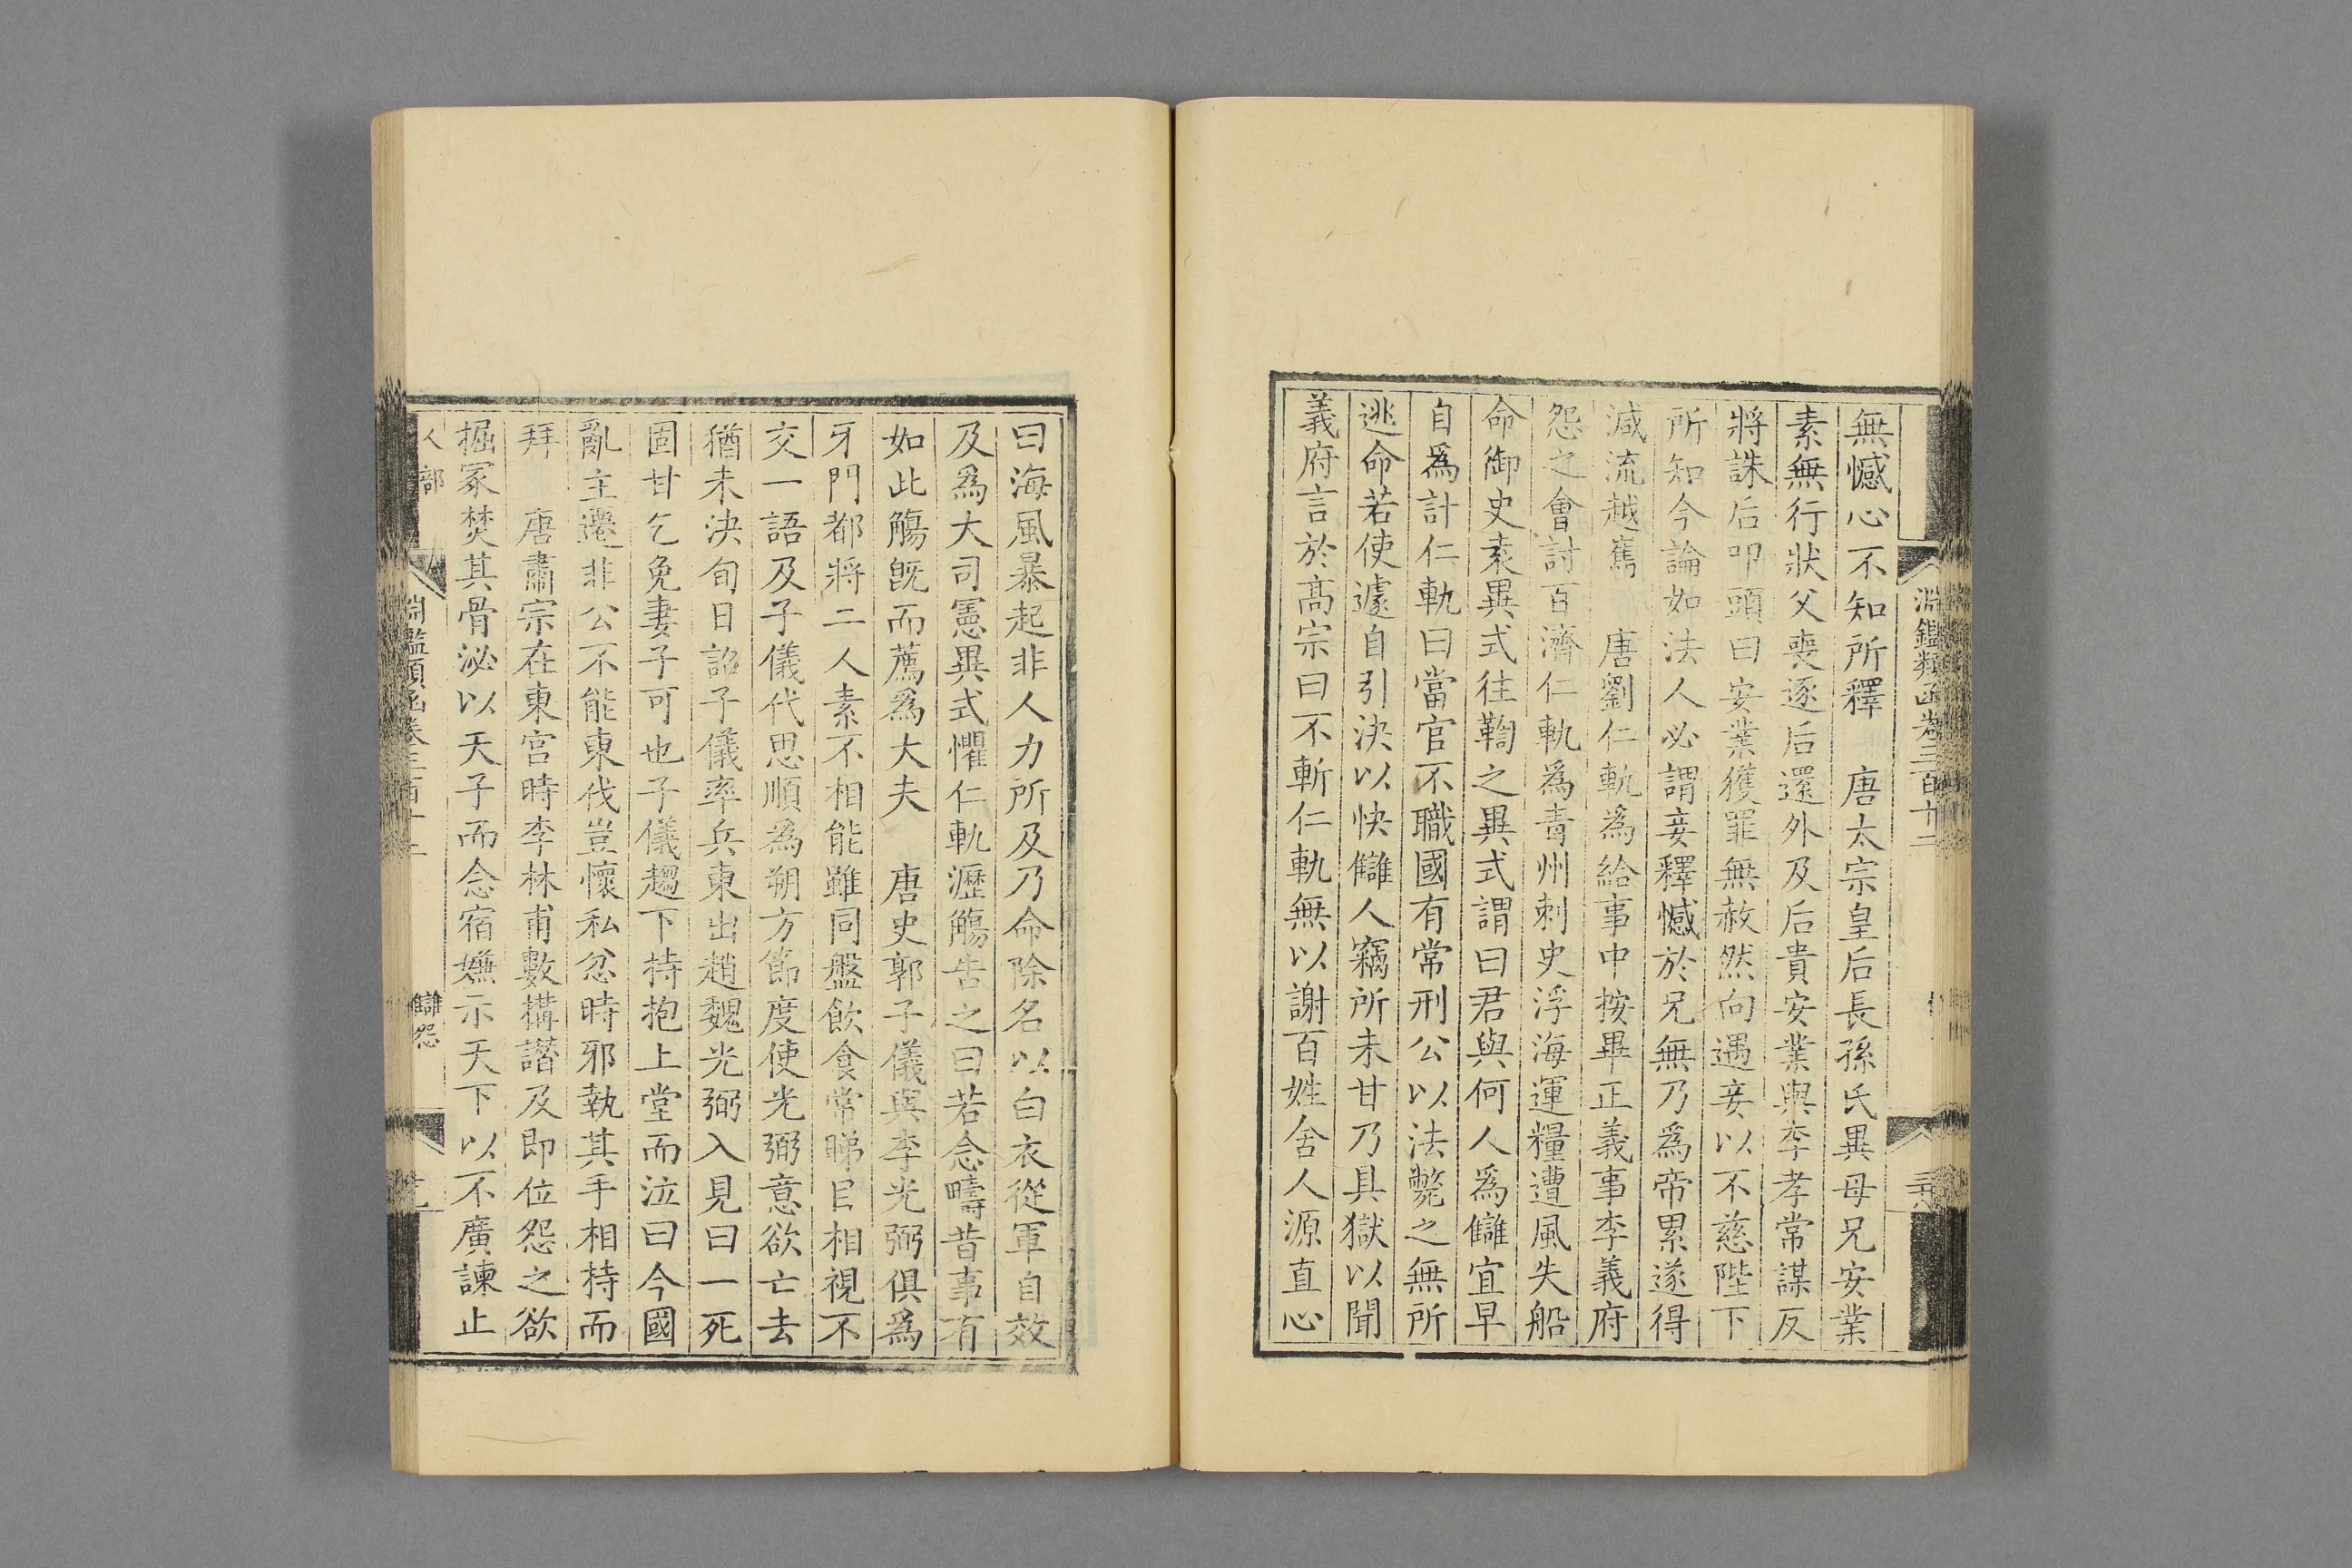 淵鑑類函卷三百十二
無憾心不知所釋　唐太宗皇后長孫氏異母兄安業
素無行狀父喪逐后還外及后貴安業與李孝常謀反
將誅后叩頭曰安業獲罪無赦然向遇妾以不慈陛下
所知今論如法人必謂妾釋憾於兄無乃爲帝累遂得
減流越嶲　唐劉仁軌爲給事中按畢正義事李義府
怨之會討百濟仁軌爲青州刺史浮海運糧遭風失船
命御史袁異式往鞫之異式謂曰君與何人爲讎宜早
自爲計仁軌曰當官不職國有常刑公以法斃之無所
逃命若使遽自引決以快讎人竊所未甘乃具獄以聞
義府言於髙宗曰不斬仁軌無以謝百姓舍人源直心
曰海風暴起非人力所及乃命除名以白衣從軍自效
及爲大司憲異式懼仁軌瀝觴告之曰若念疇昔事有
如此觴旣而薦爲大夫　唐史郭子儀與李光弼俱爲
牙門都將二人素不相能雖同盤飮食常睇目相視不
交一語及子儀代思順爲朔方節度使光弼意欲亡去
猶未決旬日詔子儀率兵東出趙魏光弼入見曰一死
固甘乞免妻子可也子儀趨下持抱上堂而泣曰今國
亂主遷非公不能東伐豈懷私忿時邪執其手相持而
拜　唐肅宗在東宮時李林甫數構譖及即位怨之欲
掘冢焚其骨泌以天子而念宿嫌示天下以不廣諫止
人部
淵鑑類函卷三百十二
讎怨